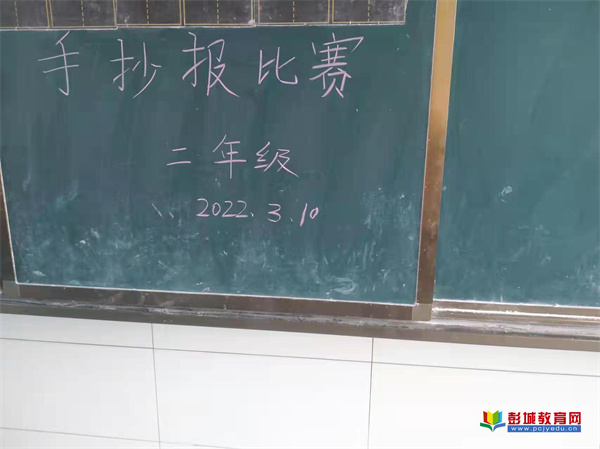 手抄报比赛
二年级
2022.3.10
彭城教育网
www.pcjyedu.cn